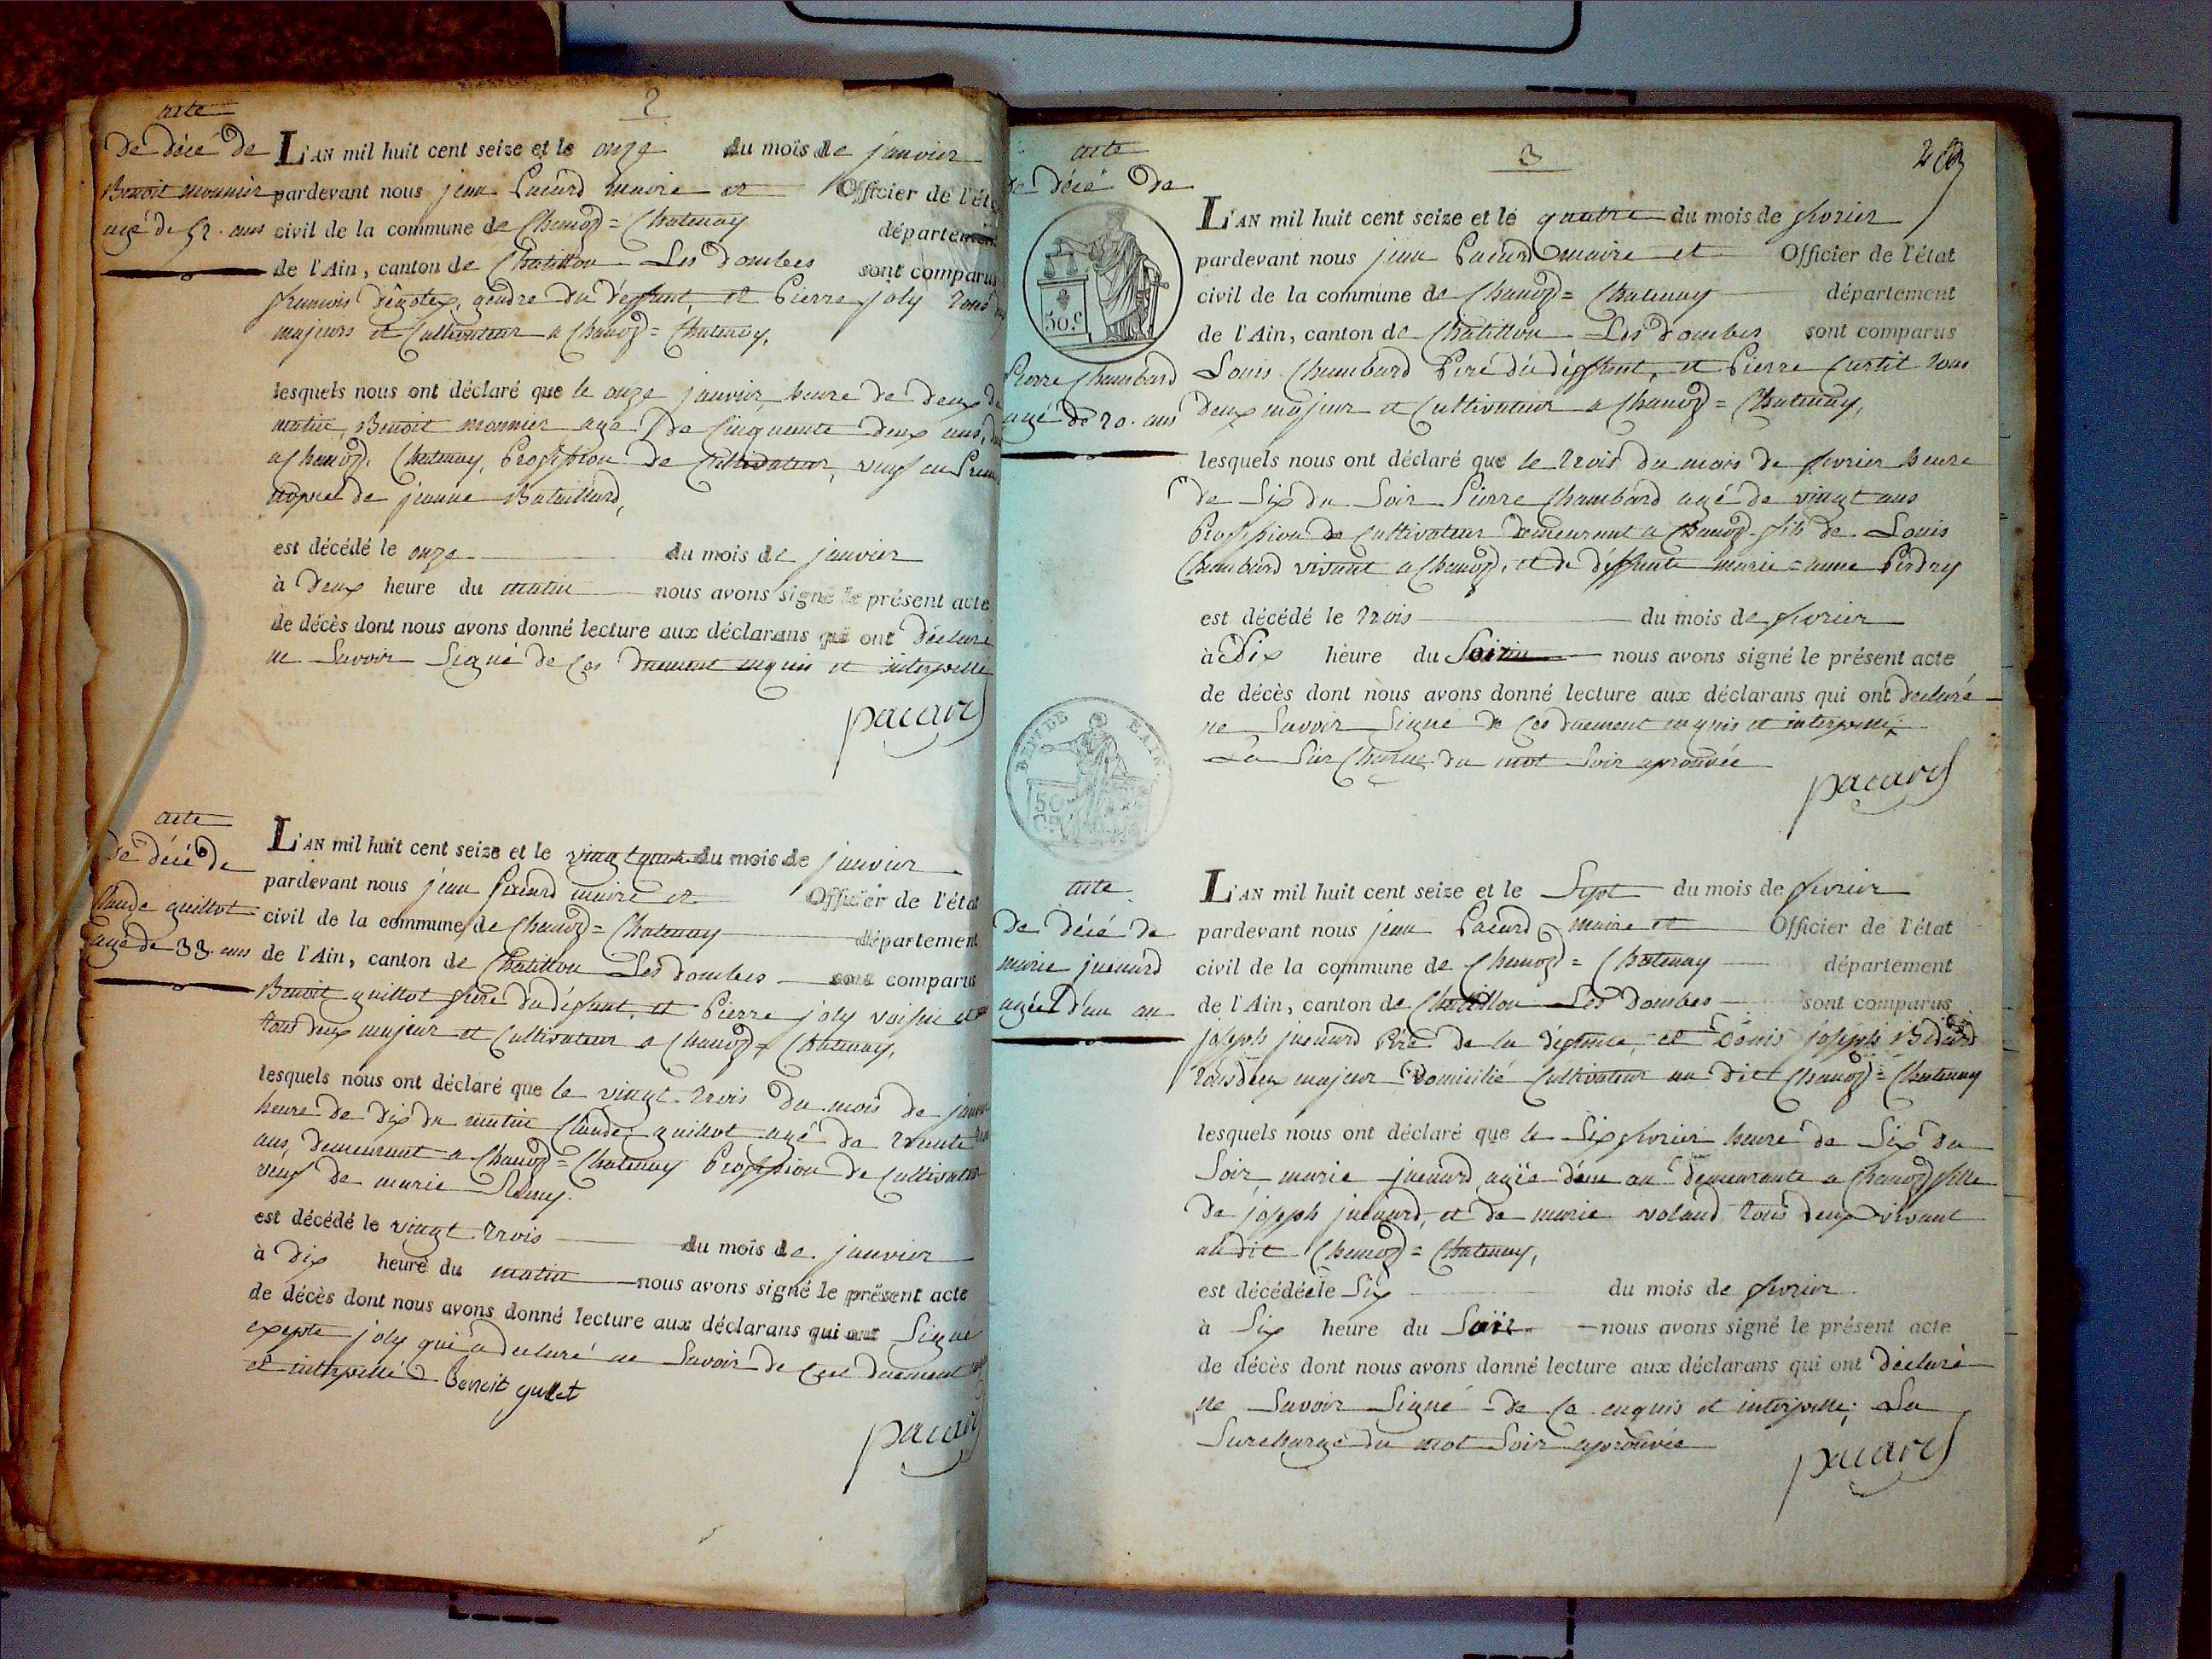 2
acte
de décé de
Benoit monnier
agé de 52. ans
L'AN mil huit cent seize et le onze du mois de janvier
pardevant nous jean Pacard maire et Officier de l'état
civil de la commune de Chanoz = Chatenay département
de l'Ain, canton de Chatillon Les Dombes sont comparus
françois gendre du deffunt, et Pierre joly tous
majeurs et Cultivateur a Chanoz = Chatenay,
lesquels nous ont déclaré que le onze janvier, heure de deux du
matin, Benoit monnier agé de Cinquante deux ans,
a Chanoz. Chatenay, Profession de Cultivateur, veuf en
de jeanne Bataillard,
est décédé le onze du mois de janvier
à deux heure du matin nous avons signé le présent acte
de décès dont nous avons donné lecture aux déclarans qui ont déclaré
ne Savoir Signé de Ces duement enquis et interpellé
pacard
acte
de décé de
Claude guillot
agé de 33. ans
L'AN mil huit cent seize et le vingt quatre du mois de janvier
pardevant nous jean Pacard maire et Officier de l'état
civil de la commune de Chanoz = Chatenay département
de l'Ain, canton de Chatillon Les Dombes sont comparus
Benoit guillot frere du déffunt, et Pierre joly voisin
tous deux majeur et Cultivateur a Chanoz = Chatenay,
lesquels nous ont déclaré que le vingt trois du mois de janvier
heure de dix du matin Claude guillot agé de trente trois
ans, demeurant a Chanoz = Chatenay Profession de Cultivateur
veuf de marie
est décédé le vingt trois du mois de janvier
à dix heure du matin nous avons signé le présent acte
de décès dont nous avons donné lecture aux déclarans qui ont Signé
expepte joly qui a declaré ne Savoir de Ceu duement
et interpellé Benoit guillot
pacard
3
acte
de décé de
50.c
Pierre Chambard
agé de 20. ans
L'AN mil huit cent seize et le quatre du mois de fevrier
pardevant nous jean Pacard maire et Officier de l'état
civil de la commune de Chanoz = Chatenay département
de l'Ain, canton de Chatillon Les Dombes sont comparus
Louis Chambard Peré du déffunt, et Pierre Curtit tous
deux majeur et Cultivateur a Chanoz = Chatenay,
lesquels nous ont déclaré que le trois du mois de fevrier heure
de Six du Soir Pierre Chambard agé de vingt ans
Profession de Cultivateur demeurant a Chanoz. fils de Louis
Chambard vivant a Chanoz, et de deffunte marie = anne Perdry
est décédé le trois du mois de fevrier
à Six heure du Soir nous avons signé le présent acte
de décès dont nous avons donné lecture aux déclarans qui ont declaré
ne Savoir Signé de Ces duement enquis et interpellé,
La Sur Charge du mot Soir aprouvée
pacard
acte
de décé de
marie juenard
agée d'un an
L'AN mil huit cent seize et le Sept du mois de fevrier
pardevant nous jean Pacard maire et Officier de l'état
civil de la commune de Chanoz = Chatenay département
de l'Ain, canton de Chatillon Les Dombes sont comparus
joseph juenard Péré de la defunte, et Louis joseph Bidard
tous deux majeur Domicilié Cultivateur au dit Chanoz = Chatenay
lesquels nous ont déclaré que le Six fevrier heure de Six du
Soir, marie juenard agée d'un an demeurante a Chanoz fille
de joseph juenard, et de marie voland tous deux vivant
au dit Chanoz = Chatenay,
est décédée le Six du mois de fevrier
à Six heure du Soir nous avons signé le présent acte
de décès dont nous avons donné lecture aux déclarans qui ont déclaré
ne Savoir Signé de Ce enquis et interpellé; La
Surcharge du mot Soir aprouvée
pacard